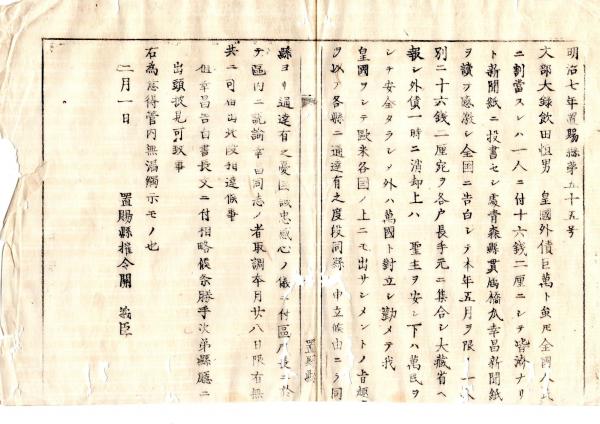 明治七年置賜縣第五十五号
文部大録飯田恒男 皇國外債巨萬ト雖𪜈全國人民
ニ割當スレハ一人ニ付十六銭二厘ニシテ皆済ナリ
ト新聞紙ニ投書セシ處青森縣貫属橋爪幸昌新聞紙
ヲ讀テ感激シ全国ニ告白シテ本年五月ヲ限リ一人
別二十六銭二厘宛ヲ各戸長手元ニ集合シ大藏省ヘ
報シ外債一時ニ消却上ハ 聖主ヲ安シ下ハ萬民ヲ
シテ安全タラシメ外ハ萬國ト對立シ勤メテ我
皇國ヲシテ歐米各国ノ上ニモ出サシメントノ旨趣
ヲ以テ各縣ニ通達有之度段同縣ヘ申立候由ニテ同
置賜縣
縣ヨリ通達有之憂国誠忠感心ノ儀ニ付區戸長ニ於
テ區内ニ説諭幸昌同志ノ者取調本月廿八日限有無
共ニ可届出此段相達候事
但幸昌告白書長文ニ付相略候条勝手次第縣廳ニ
出頭披見可致事
右為心得管内無漏觸示モノ也
二月一日 置賜縣權令關 義臣